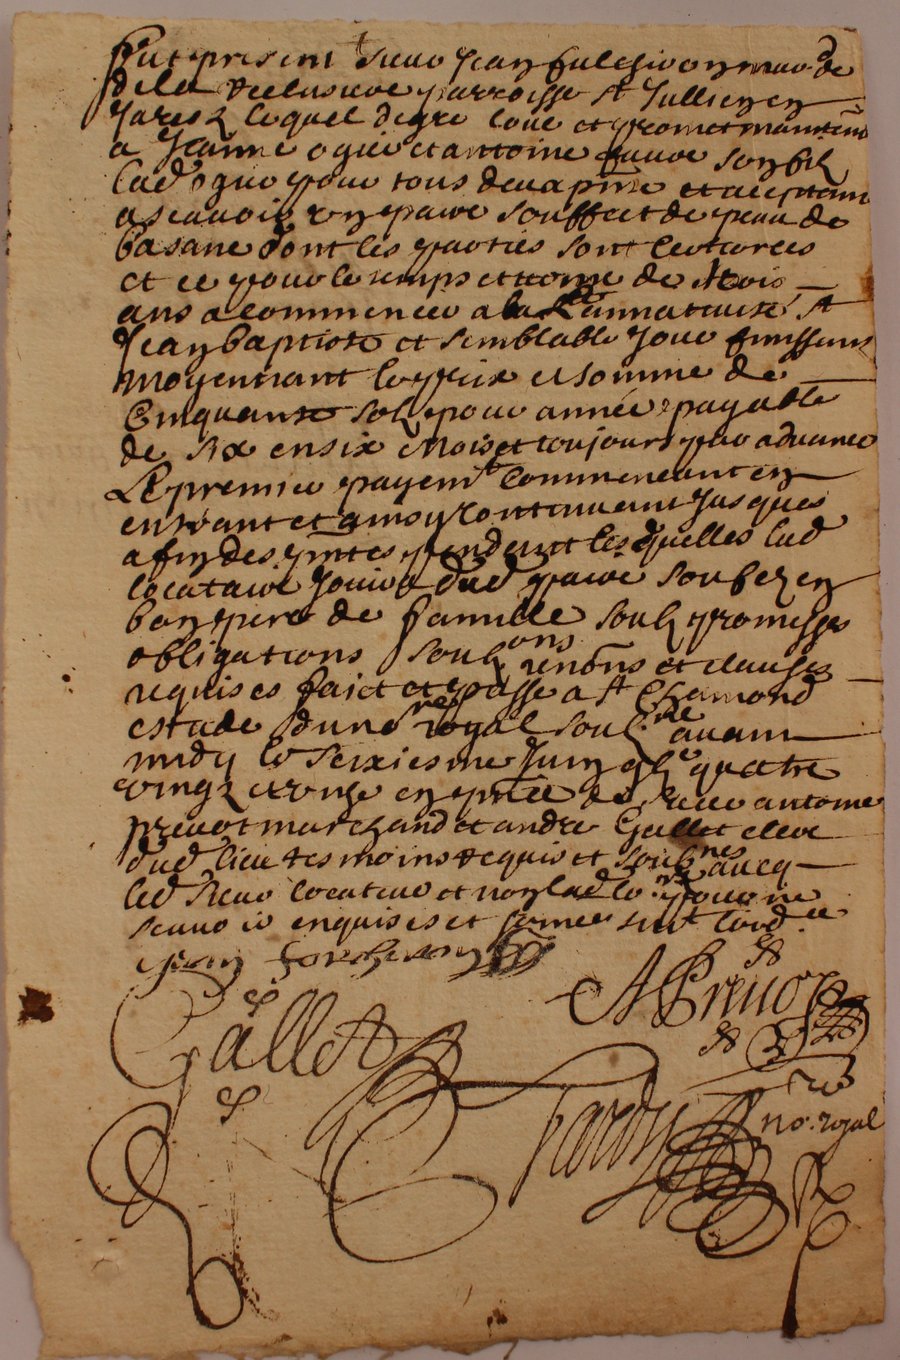 Fut present Sieur Jean fulchiron marc.d de
de la paroisse St Jullien en
Jarez lequel de gré loue et promet maintenir
a Jeanne ogier et antoine son filz
lad ogier pour tous deux pnte et acceptant
a scavoir un paire souffect de peau de
basane dont les parties sont
et ce pour le temps et terme de trois
ans a commencer a la St
Jean baptiste et semblable Jour finissant
moyennant le prix et somme de
Cinquante solz pour année payable
de six en six mois et toujours par advance
Le premier payemt commenceant en
entrant et ainsy continuant Jusques
a fin des pntes pendant lesquelles lad
locataire Jouira dud paire soufletz en
bon pere de famille soubz promesses
obligations soubzons renõns et clauses
requises faict et passé a St Chamond
estude du nore royal soubzne avant
midy le seixiesme Juin gbc quatre
vingz et unze en pnce de Sieur antoine
prevot marchand et andré Gallet eleve
dud lieu tesmoins requis et soubznes avecq
led Sieur locateur et non lad pour ne
scavoir enquises et sommer suivt lord.ce
Jean
A Prevot
Gallet
Tardy
no. royal